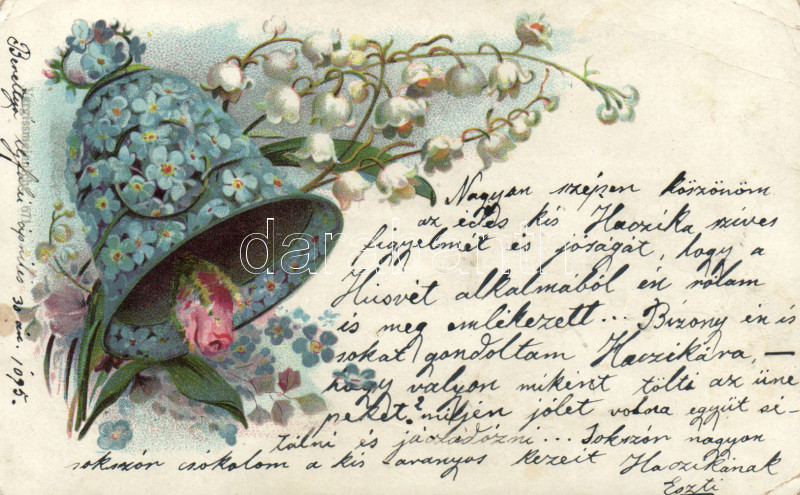 Nagyon szépen köszönöm
az édes kis Haczika szíves
figyelmét és jóságát, hogy a
Húsvét alkalmából én rólam
is meg emlékezett... Bizony én is
sokat gondoltam Haczikára, —
hogy valyon miként tölti az üne
peket? miljen jólet volna együt sé-
tálni és járádózni... Sokszór nagyon
sokszór csókolom a kis aranyos kezeit Haczikának
Eszti
április 30 án. 1095.
darabanth